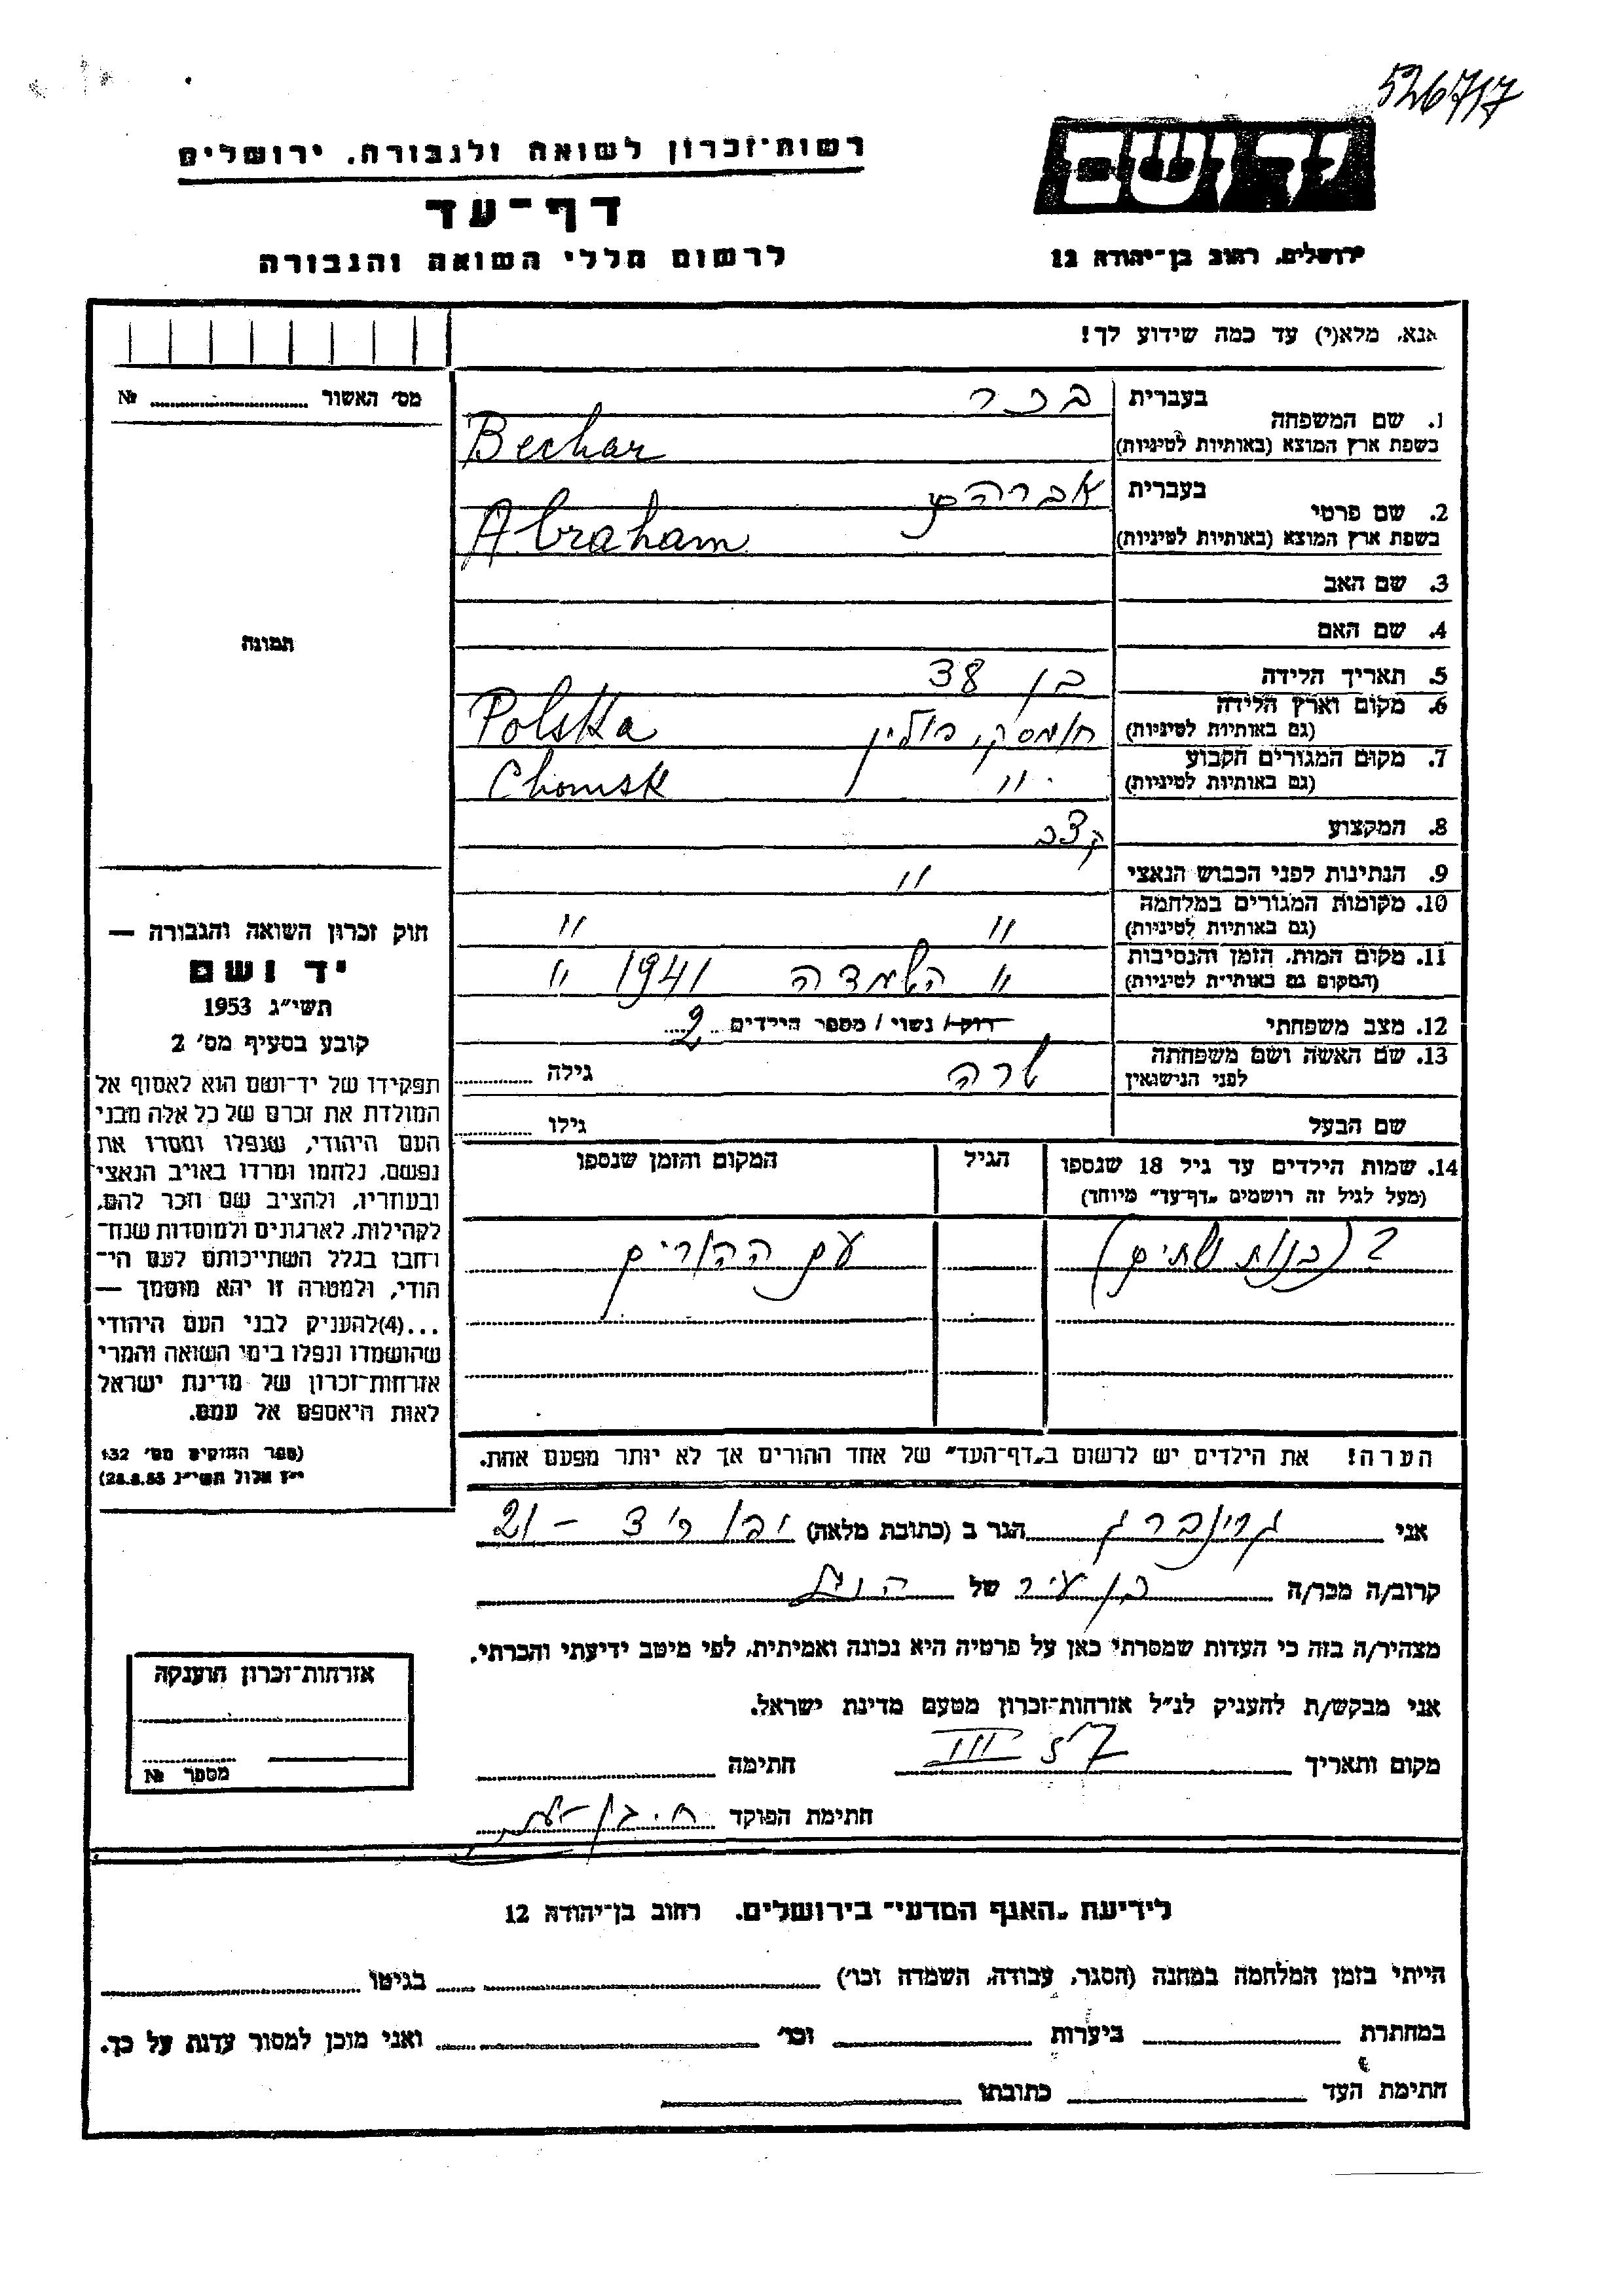 526717
יד ושם
רשות־זכרון לשואה ולגבורה. ירושלים
דף־עד
לרשום חללי השואה והגבורה
ירושלים, רחוב בן־יהודה 12
אנא, מלא(י) עד כמה שידוע לך!
מס׳ האשור № 
1. שם המשפחה בעברית בכר
בשפת ארץ המוצא (באותיות לטיניות) Bechar
2. שם פרטי בעברית אברהם
בשפת ארץ המוצא (באותיות לטיניות) Abraham
3. שם האב
4. שם האם
תמונה
5. תאריך הלידה בן 38
6. מקום וארץ הלידה (גם באותיות לטיניות) חומסק, פולין Polska
7. מקום המגורים הקבוע (גם באותיות לטיניות) " Chomsk
8. המקצוע קצב
9. הנתינות לפני הכבוש הנאצי "
10. מקומות המגורים במלחמה (גם באותיות לטיניות) " "
11. מקום המות, הזמן והנסיבות (המקום גם באותיות לטיניות) " השמדה 1941 "
12. מצב משפחתי רוק / נשוי / מספר הילדים 2
13. שם האשה ושם משפחתה לפני הנישואין שרה גילה
שם הבעל גילו
14. שמות הילדים עד גיל 18 שנספו הגיל המקום והזמן שנספו
(מעל לגיל זה רושמים „דף־עד״ מיוחד)
2 (בנות שתים) עם ההורים
הערה! את הילדים יש לרשום ב„דף־העד״ של אחד ההורים אך לא יותר מפעם אחת.
חוק זכרון השואה והגבורה —
יד ושם
תשי״ג 1953
קובע בסעיף מס׳ 2
תפקידו של יד־ושם הוא לאסוף אל
המולדת את זכרם של כל אלה מבני
העם היהודי, שנפלו ומסרו את
נפשם, נלחמו ומרדו באויב הנאצי
ובעוזריו, ולהציב שם וזכר להם,
לקהילות, לארגונים ולמוסדות שנח־
רבו בגלל השתייכותם לעם הי־
הודי, ולמטרה זו יהא מוסמך —
...(4) להעניק לבני העם היהודי
שהושמדו ונפלו בימי השואה והמרי
אזרחות־זכרון של מדינת ישראל
לאות היאספם אל עמם.
(ספר החוקים מס׳ 132
י״ז אלול תשי״ג 28.8.53)
אני גרינברג הגר ב (כתובת מלאה) 21 –
קרוב/ה מכר/ה בן עיר של הנ״ל
מצהיר/ה בזה כי העדות שמסרתי כאן על פרטיה היא נכונה ואמיתית, לפי מיטב ידיעתי והכרתי.
אני מבקש/ת להעניק לנ״ל אזרחות־זכרון מטעם מדינת ישראל.
מקום ותאריך III 57 חתימה
חתימת הפוקד
אזרחות־זכרון הוענקה
מספר №
לידיעת „האגף המדעי״ בירושלים. רחוב בן־יהודה 12
הייתי בזמן המלחמה במחנה (הסגר, עבודה, השמדה וכו׳) בגיטו
במחתרת ביערות וכו׳ ואני מוכן למסור עדות על כך.
חתימת העד כתובתו